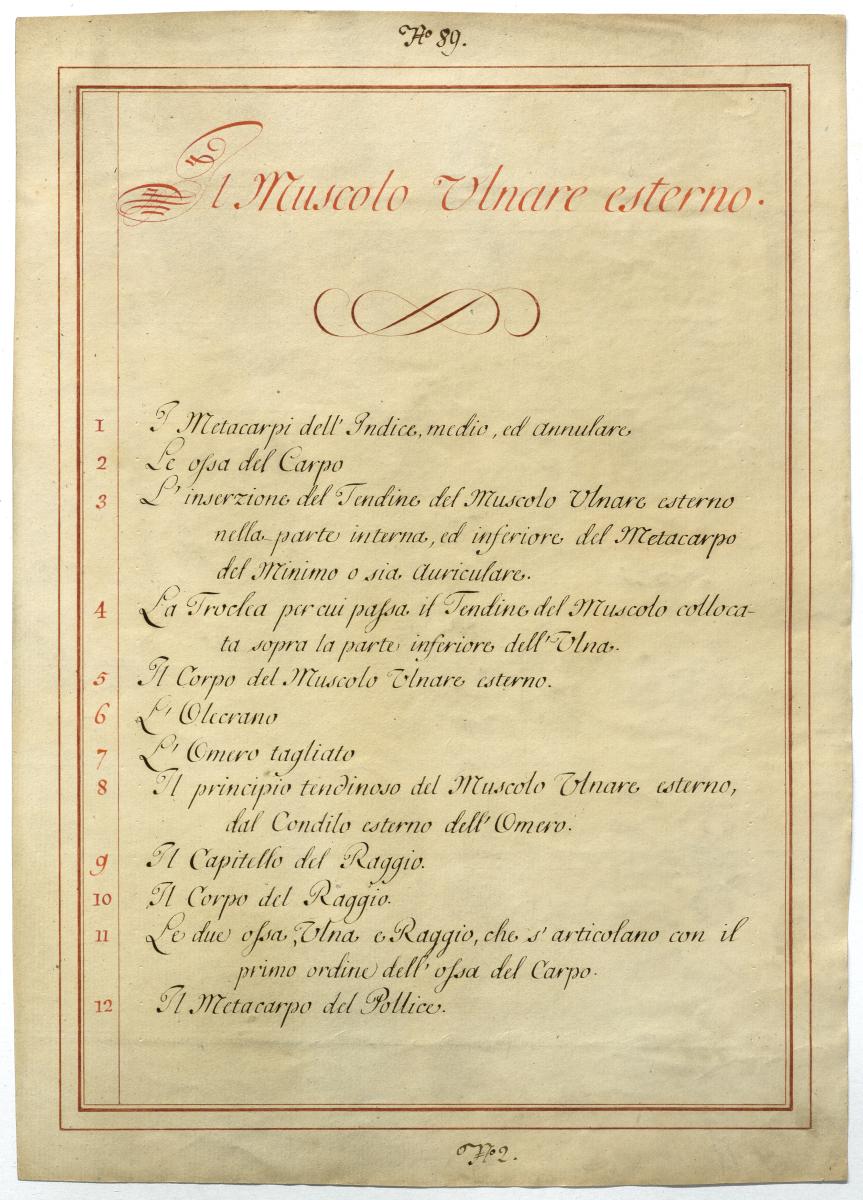 No 89.
Il Muscolo Ulnare esterno.
1 I Metacarpi dell'Indice, medio, ed annulare
2 Le ossa del Carpo
3 L'inserzione del Tendine del Muscolo Ulnare esterno
nella parte interna, ed inferiore del Metacarpo
del Minimo o sia Auriculare.
4 La Troclea per cui passa il Tendine del Muscolo colloca-
ta sopra la parte inferiore dell'Ulna.
5 Il Corpo del Muscolo Ulnare esterno.
6 L'Olecrano
7 L'Omero tagliato
8 Il principio tendinoso del Muscolo Ulnare esterno,
dal Condilo esterno dell'Omero.
9 Il Capitello del Raggio.
10 Il Corpo del Raggio.
11 Le due ossa, Ulna e Raggio, che s'articolano con il
primo ordine dell'ossa del Carpo.
12 Il Metacarpo del Pollice.
No 2.